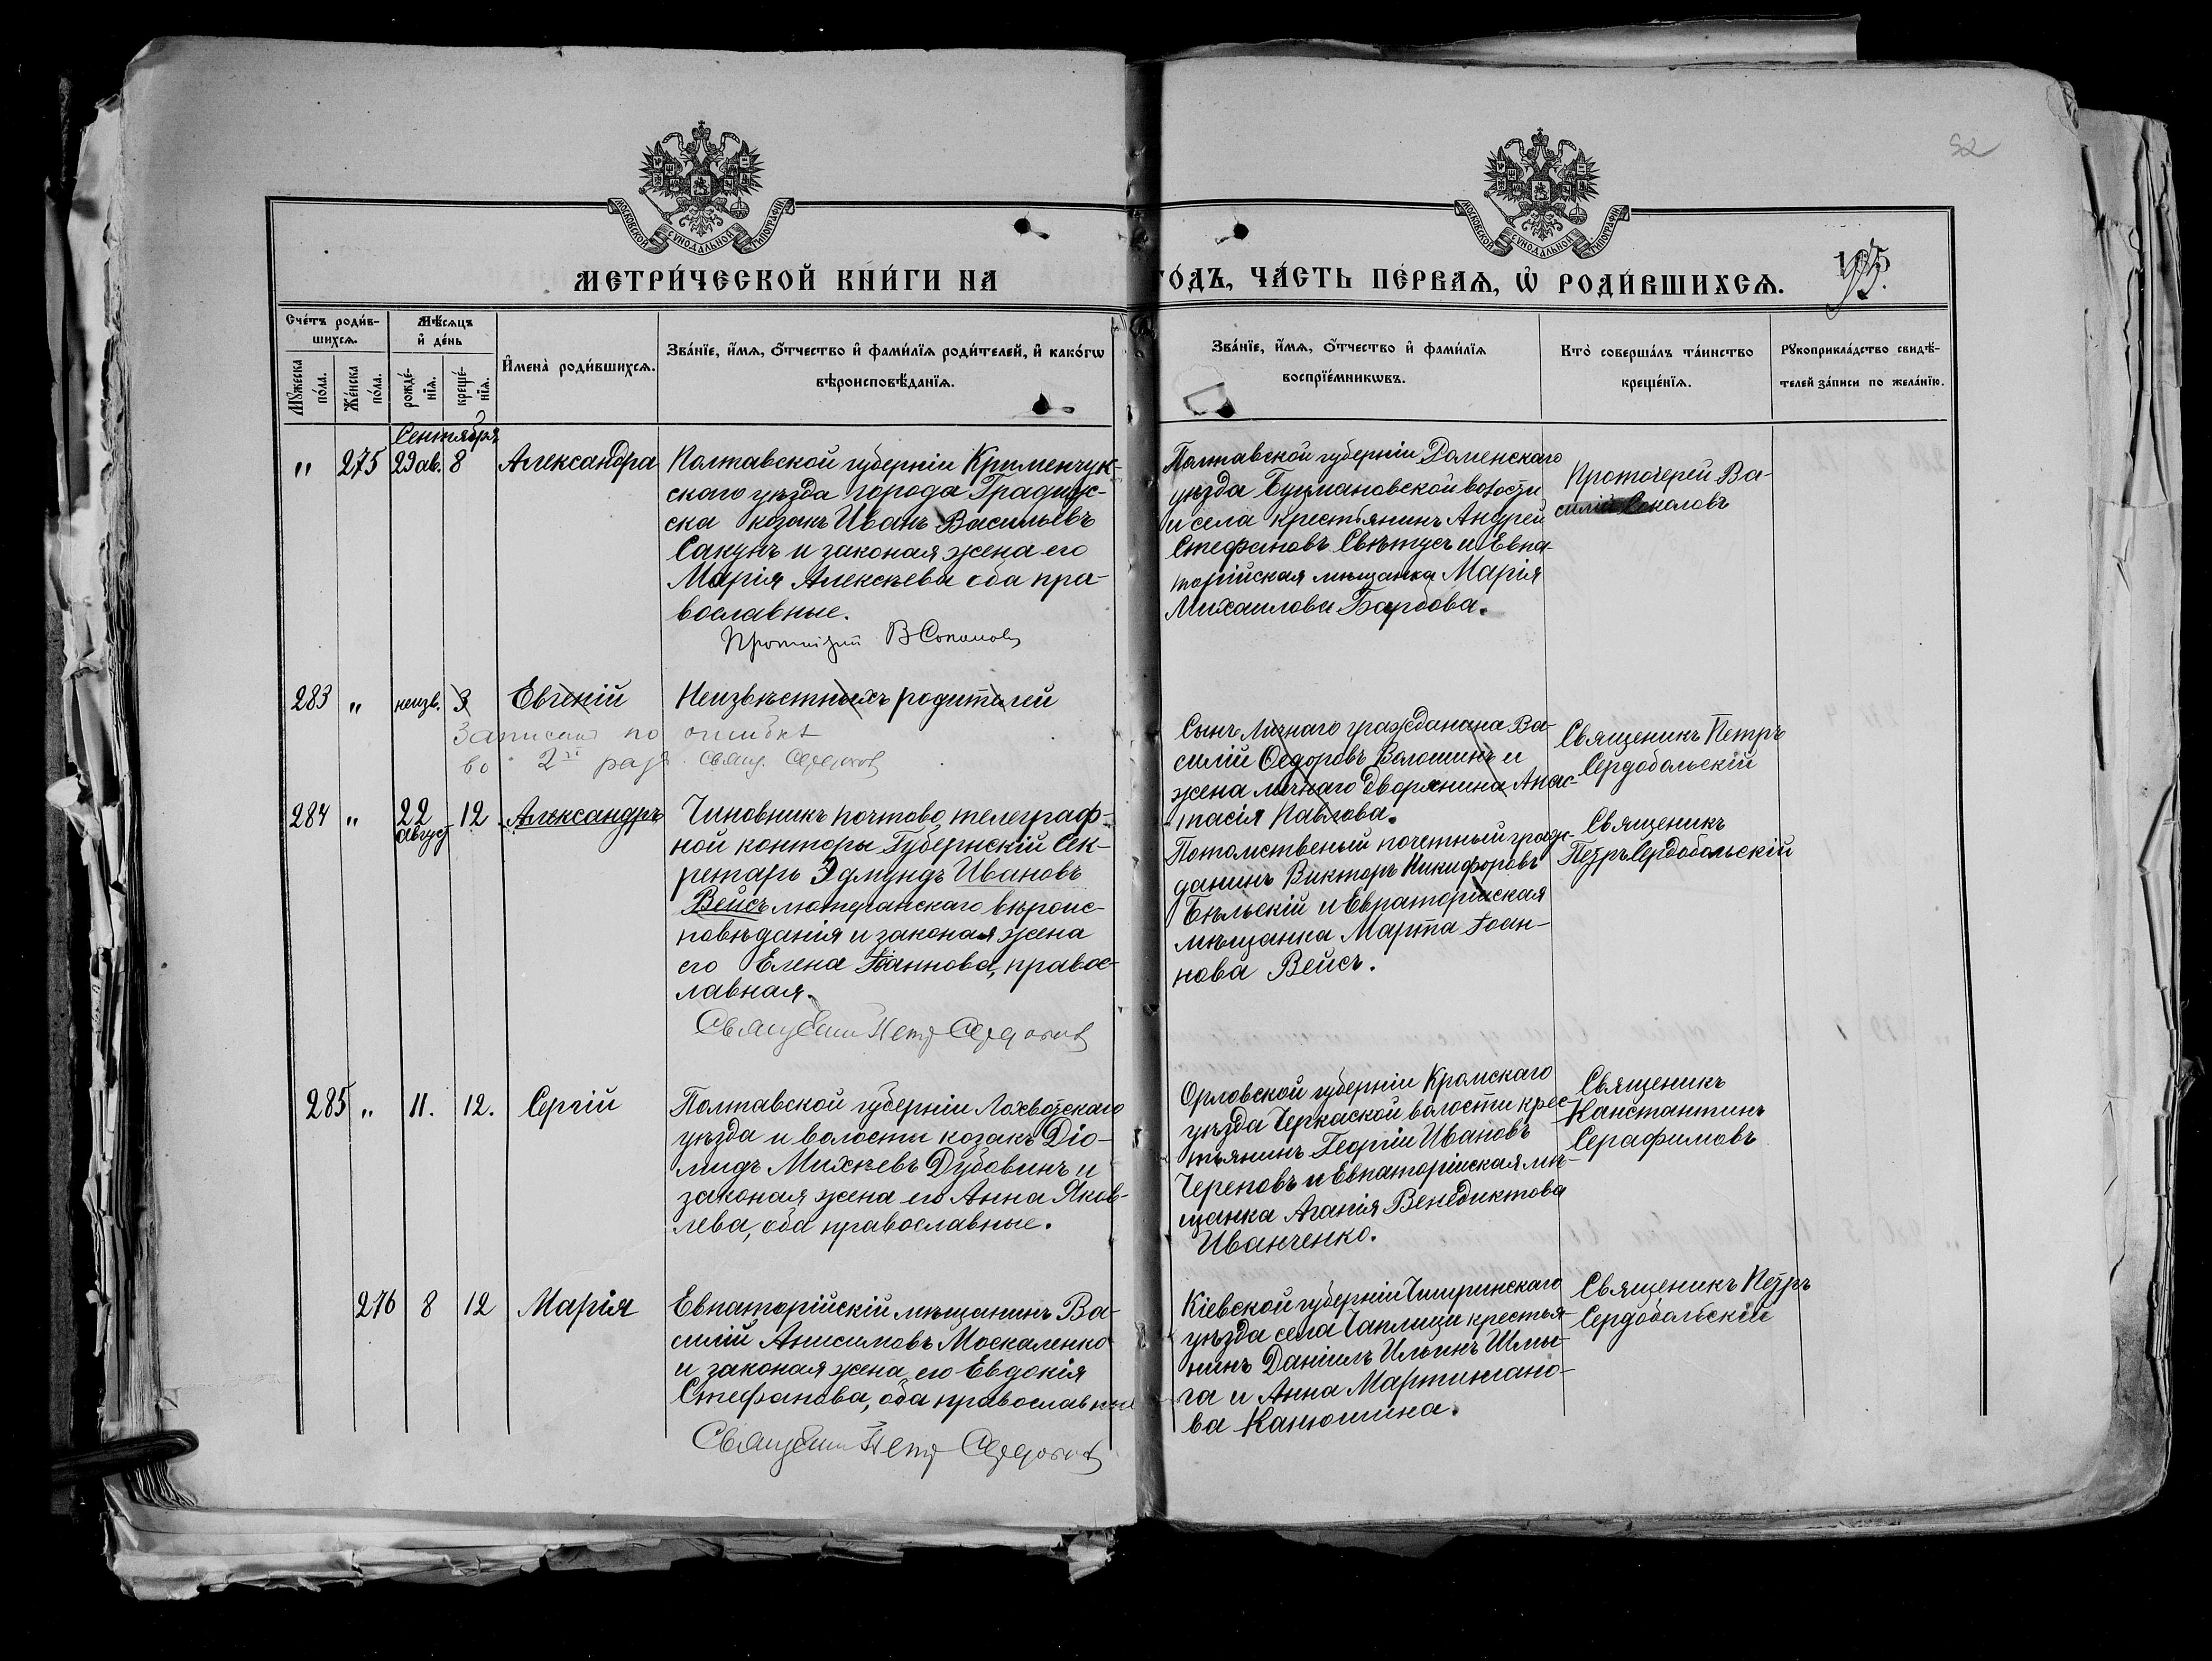 52
МОСКОВСКОЙ СѴНОДАЛЬНОЙ ТИПОГРАФІИ
МОСКОВСКОЙ СѴНОДАЛЬНОЙ ТИПОГРАФІИ
МЕТРИ́ЧЕСКОЙ КНИ́ГИ НА ГО́ДЪ, ЧА́СТЬ ПЕ́РВАѦ, Ѡ҆ РОДИ́ВШИХСѦ.
Сче́тъ роди́в-
шихсѧ.
Мѣ́сѧцъ
и҆ де́нь
Мꙋ́жеска
по́ла.
Же́нска
по́ла.
рожде́-
нїѧ.
креще́-
нїѧ.
И҆мена̀ роди́вшихсѧ.
Зва́нїе, и҆́мѧ, ѻ҆́тчество и҆ фами́лїѧ роди́телей, и҆ како́гѡ
вѣроисповѣ́данїѧ.
Зва́нїе, и҆́мѧ, ѻ҆́тчество и҆ фами́лїѧ
воспрїе́мникѡвъ.
Кто̀ соверша́лъ та́инство
креще́нїѧ.
Рꙋкоприкла́дство свидѣ́-
телей за́писи по жела́нїю.
Сентября
" 275 29 ав. 8 Александра
Полтавской губерніи Крименчук-
скаго уѣзда города Градиж-
ска козакъ Иванъ Васильевъ
Сакунъ и законая жена его
Марія Алексѣева оба пра-
вославные.
В Соколовъ
Полтавской губерніи Роменскаго
уѣзда волости
и села крестьянинъ Андрей
Стефановъ Свѣтусъ и Евпа-
торійская мѣщанка Марія
Михаилова Барбова.
Протоіерей Ва-
силій Соколовъ
283 " неизв. 3 Евгеній
Неизвѣстныхъ родителей
Записано по ошибкѣ
во 2й разъ. Свящ.
Сынъ Личнаго гражданина Ва-
силій Ѳедоровъ Волошинъ и
жена личнаго дворянина Анас-
тасія Павлова.
Священикъ Петръ
Сердобольскій
284 " 22 август 12 Александръ
Чиновникъ почтово телеграф-
ной конторы Губернскій Сек-
ретарь Эдмундъ Ивановъ
Вейсъ лютеранскаго вѣроис-
повѣданія и законая жена
его Елена Іоаннова, правос-
лавная.
Священикъ Петр
Потомственый почетный граж-
данинъ Викторъ Никифоровъ
Бѣльскій и Евпаторійская
мѣщанка Марта Іоан-
нова Вейсъ.
Священикъ
Петръ Сердобольскій
285 " 11. 12. Сергій
Полтавской губерніи Лохвозскаго
уѣзда и волости козакъ Діо-
мидъ Михѣевъ Дубовинъ и
законая жена его Анна Яков-
лева, оба православные.
Орловской губерніи Кромскаго
уѣзда Черкаской волости крес-
тьянинъ Георгій Ивановъ
Череповъ и Евпаторійская мѣ-
щанка Агапія Венедиктова
Иванченко.
Священикъ
Канстантинъ
Серафимовъ
276 8 12 Марія
Евпаторійскій мѣщанинъ Ва-
силій Анисимовъ Москаленко
и законая жена его Евдокія
Стефанова, оба православные
Священикъ Петр
Кіевской губерніи Чигиринскаго
уѣзда села Чаплищи крестья-
нинъ Даніилъ Ильинъ Шмы-
га и Анна Мартиніано-
ва Канюшина.
Священикъ Петръ
Сердобольскій